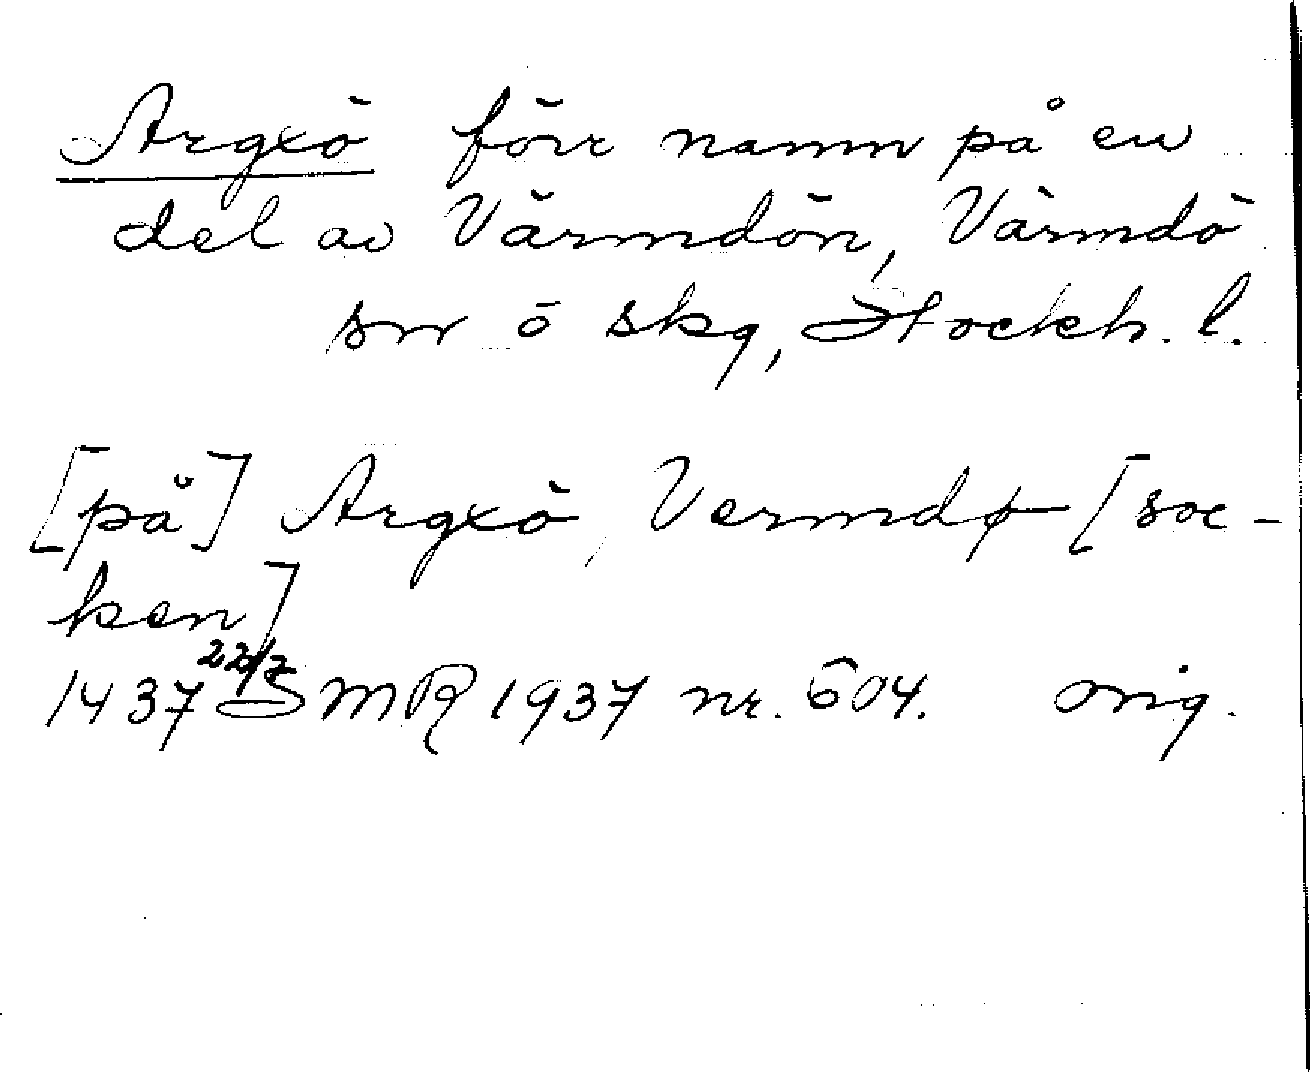 Argxö förr namn på en
del av Värmdön, Värmdö
sn ö skg, Stockh. l.
[på] Argxö, Vermdø [soc-
ken]
1437 22/7 SMR 1937 nr. 604. orig.